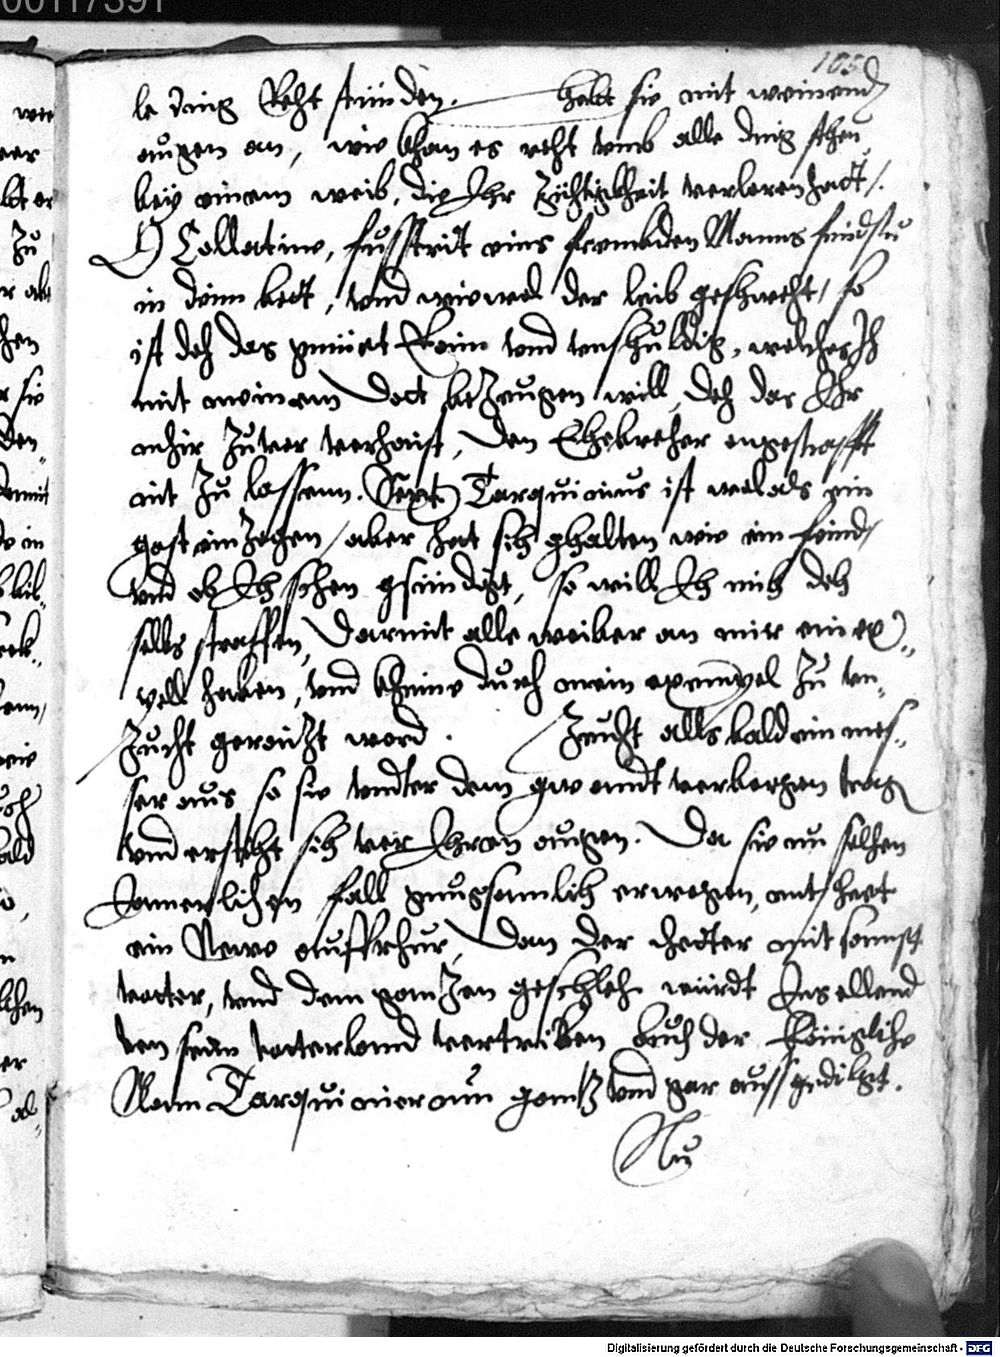 00117391
105
le ding Recht stünden. hebt sie mit weinend
augen an, wie khan es recht umb alle ding stehen
bey einem weib, die Ihr Züchtigkheit verloren hatt/.
O Collatine, fusstritt eins frembden Manns findstu
in deim bett, und wiewol der leib geschwecht, so
ist doch das gmüet Rain und unschuldig, welches Ich
mit meinem Dott bezeugen will, doch das Ihr
mhir Zuvor verhaist, den Ehebrecher ungestrafft
nit Zu lassenn. Sext. Tarquinius ist wol als ein
gast einzogen, aber hat sich ghalten wie ein feind,
und ob Ich schon gsündigt, so will Ich mich doch
selbs straffen, Darmit alle weiber an mir ein ex„
pell haben, und kheine durch mein exempel Zu un„
Zucht geraizt werd. Zeucht allsbald ein mes„
ser aus so sie undter dem gwandt verborgen trag
und ersticht sich vor Ihren augen. Da sie nu solchen
Jamerlichen fall gnugsamlich erwogen, entsteet
ein Newe auffrhur, Dan der thetter mit sampt
vatter, und dem gantzen geschlecht würdt Ins ellend
von seim vatterland vertriben, auch der Königliche
Nam Tarquinier nun gantz und gar aussgedilgt.
Nu
Digitalisierung gefördert durch die Deutsche Forschungsgemeinschaft - DFG